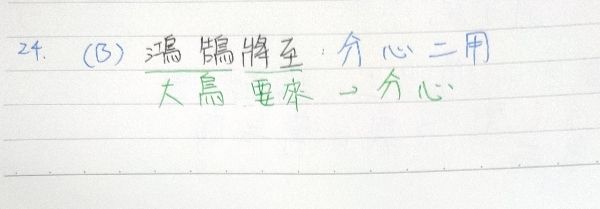 24. (B) 鴻鵠將至:分心二用
大鳥要來→分心